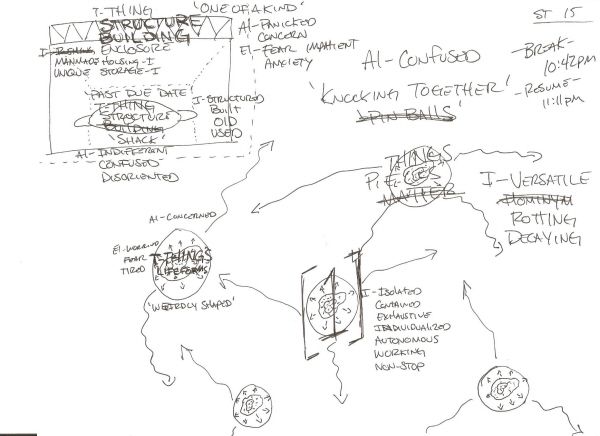 T-THING
'ONE OF A KIND'
STRUCTURE
BUILDING
AI-PANICKED
CONCERN
EI-FEAR IMPATIENT
ANXIETY
ST 15
-BREAK-
10:42PM
-RESUME-
11:11PM
AI-CONFUSED
'KNOCKING TOGETHER'
'PIN BALLS'
I-ROOM, ENCLOSURE
MANMADE HOUSING-I
UNIQUE STORAGE-I
'PAST DUE DATE'
T-THING
STRUCTURE
BUILDING
'SHACK'
I-STRUCTURED
BUILT
OLD
USED
AI-INDIFFERENT
CONFUSED
DISORIENTED
THINGS
PIECES
MATTER
I-VERSATILE
HOMINYM
ROTTING
DECAYING
AI-CONCERNED
EI-WORRIED
FEAR
TIRED
T-THINGS
'LIFEFORMS'
'WEIRDLY SHAPED'
I-ISOLATED
CONTAINED
EXHAUSTIVE
INDIVIDUALIZED
AUTONOMOUS
WORKING
NON-STOP